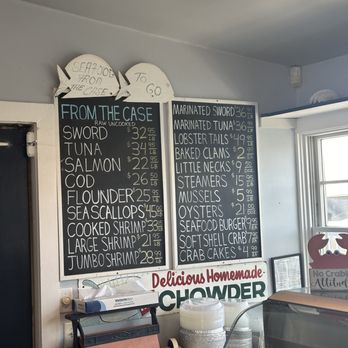 SEAFOOD
FROM
THE CASE
TO
GO
FROM THE CASE
RAW UNCOOKED
SWORD $32
TUNA $34
SALMON $22
COD $26
FLOUNDER $25
SEA SCALLOPS $45
COOKED SHRIMP $33
LARGE SHRIMP $21
JUMBO SHRIMP $28
MARINATED SWORD $34
MARINATED TUNA $36
LOBSTER TAILS
BAKED CLAMS $2
LITTLE NECKS $9
STEAMERS
MUSSELS $5
OYSTERS $21
SEAFOOD BURGER $9
SOFT SHELL CRAB
CRAB CAKES $4
Delicious Homemade
CHOWDER
No Crabby
Attitudes